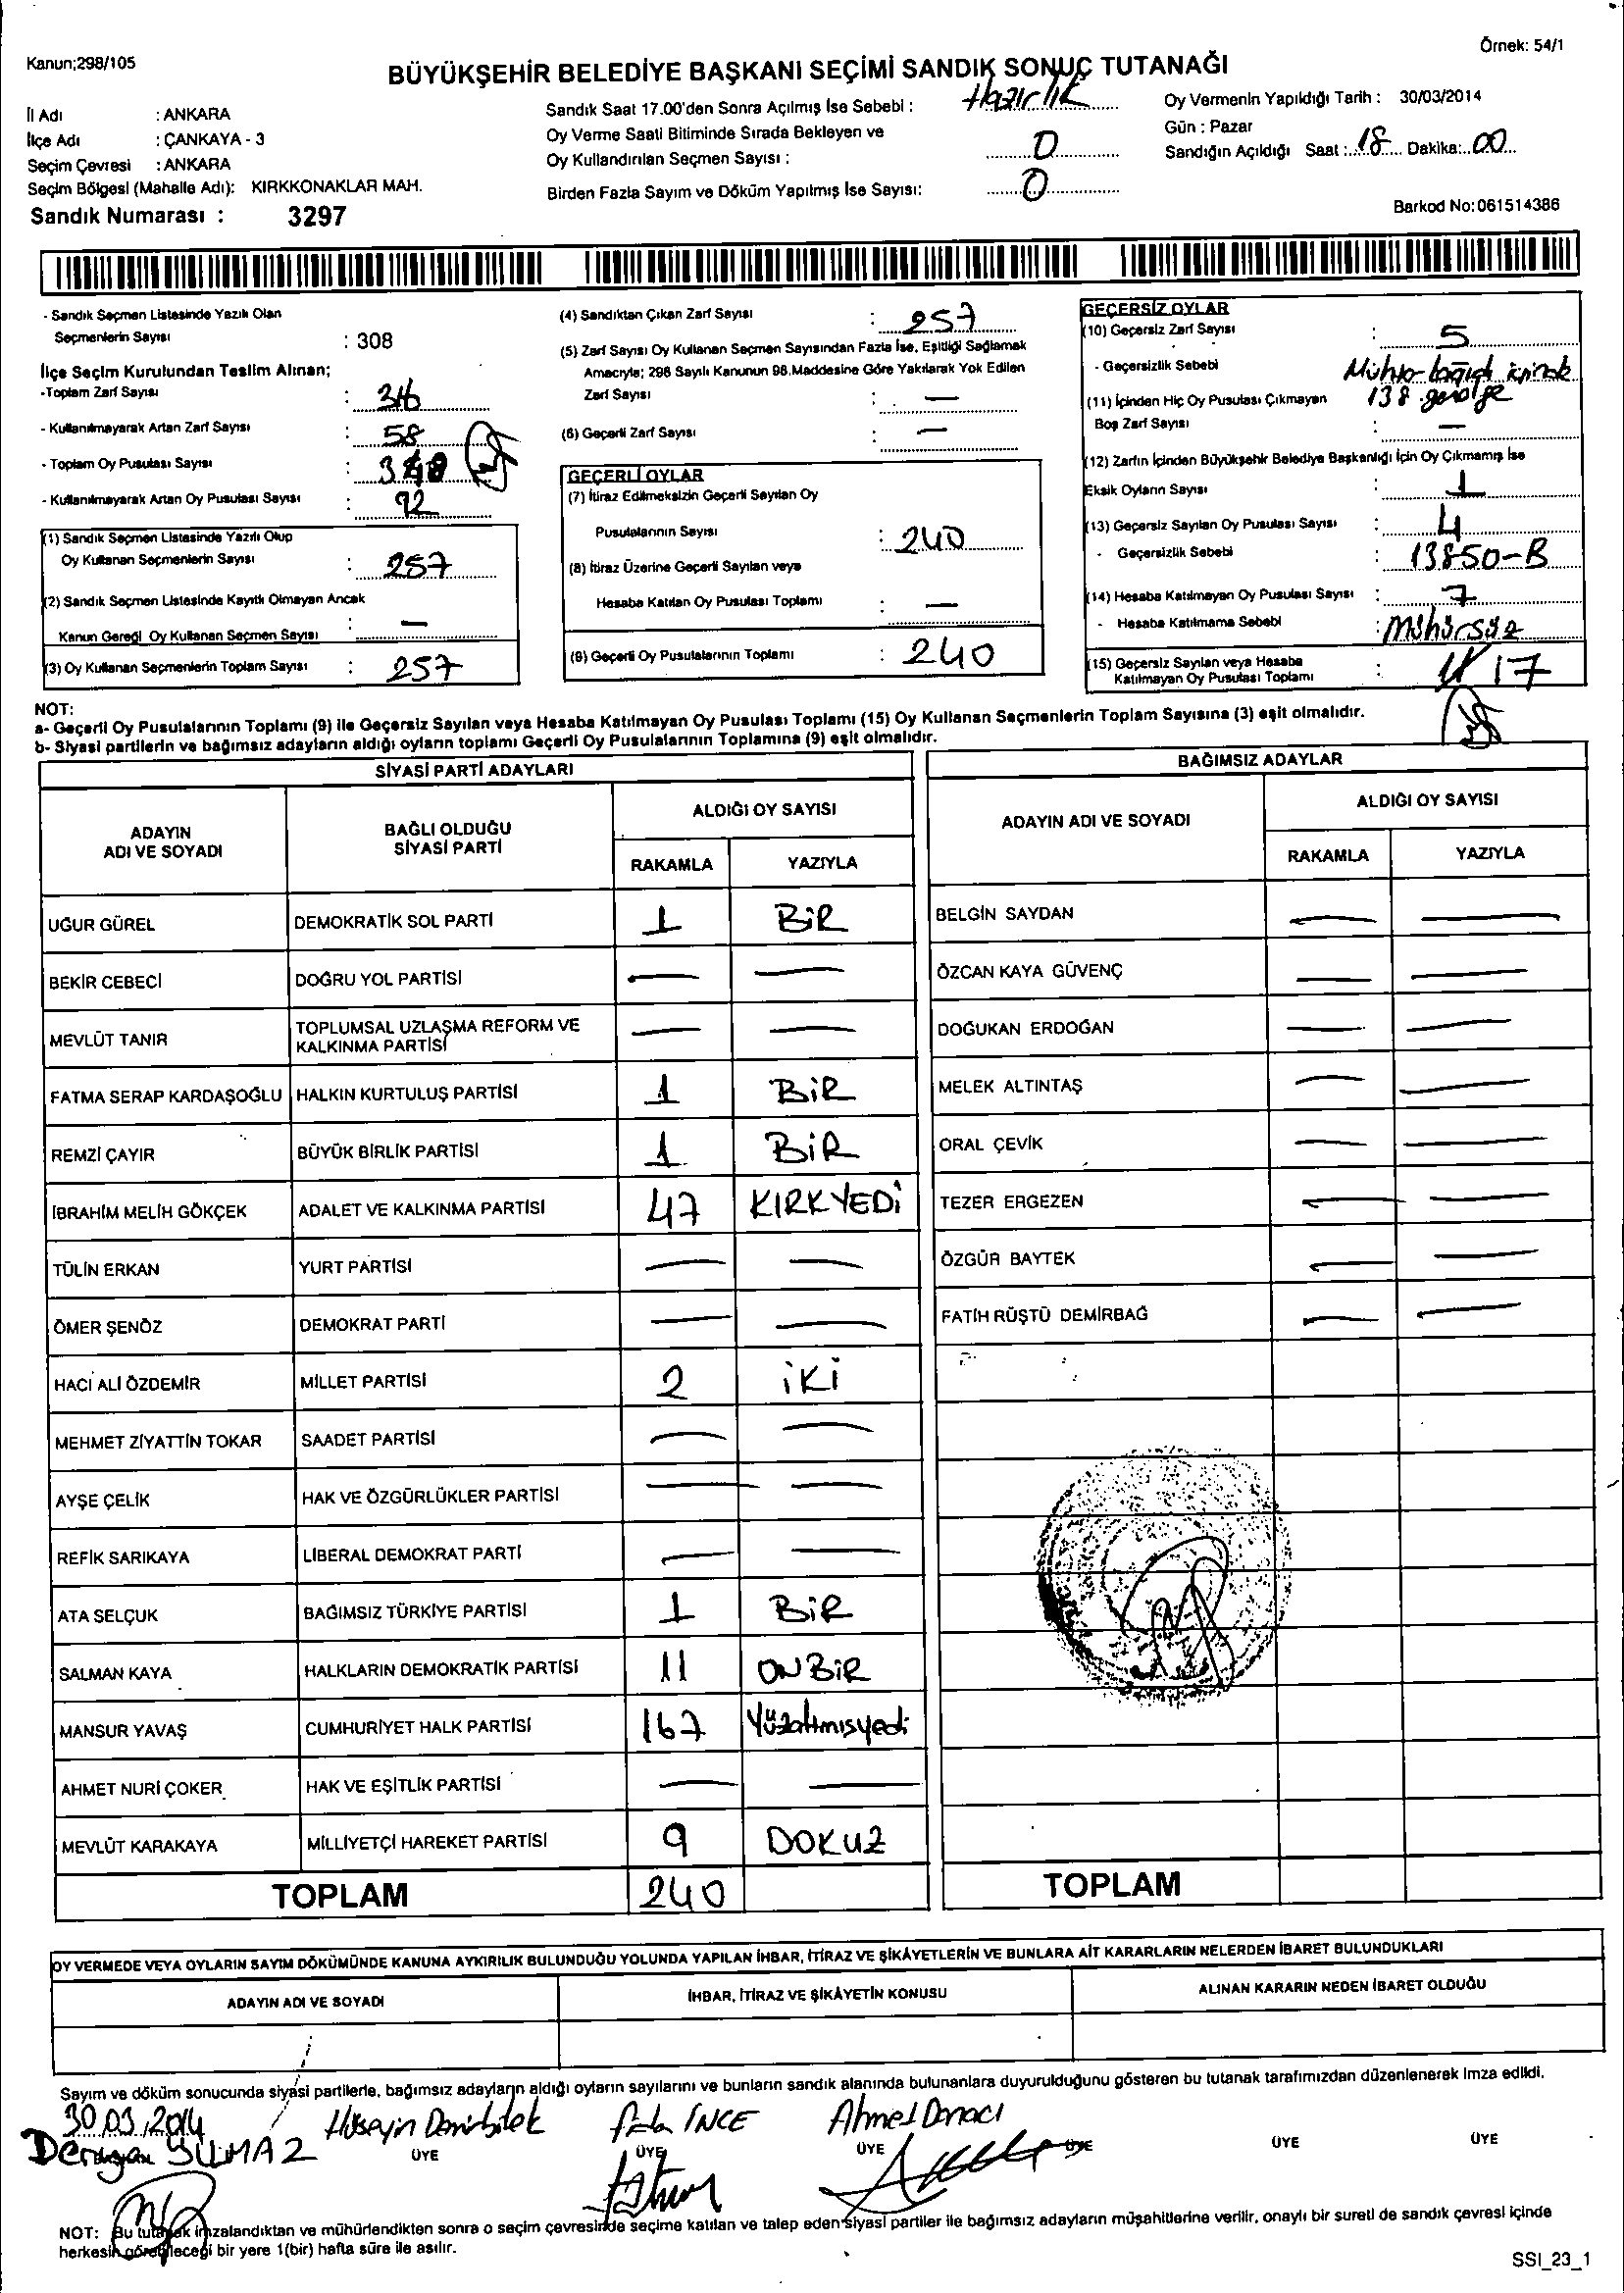 Örnek: 54/1
Kanun;298/105
BÜYÜKŞEHİR BELEDİYE BAŞKANI SEÇİMİ SANDIK SONUÇ TUTANAĞI
İl Adı : ANKARA
İlçe Adı : ÇANKAYA - 3
Seçim Çevresi : ANKARA
Seçim Bölgesi (Mahalle Adı): KIRKKONAKLAR MAH.
Sandık Numarası : 3297
Sandık Saat 17.00'den Sonra Açılmış İse Sebebi : Hazırlık
Oy Verme Saati Bitiminde Sırada Bekleyen ve
Oy Kullandırılan Seçmen Sayısı : 0
Birden Fazla Sayım ve Döküm Yapılmış İse Sayısı: 0
Oy Vermenin Yapıldığı Tarih : 30/03/2014
Gün : Pazar
Sandığın Açıldığı Saat : 18 Dakika: 00
Barkod No:061514386
- Sandık Seçmen Listesinde Yazılı Olan
Seçmenlerin Sayısı : 308
İlçe Seçim Kurulundan Teslim Alınan;
-Toplam Zarf Sayısı :
- Kullanılmayarak Artan Zarf Sayısı : 58
- Toplam Oy Pusulası Sayısı :
- Kullanılmayarak Artan Oy Pusulası Sayısı : 92
(1) Sandık Seçmen Listesinde Yazılı Olup
Oy Kullanan Seçmenlerin Sayısı : 257
(2) Sandık Seçmen Listesinde Kayıtlı Olmayan Ancak
Kanun Gereği Oy Kullanan Seçmen Sayısı : —
(3) Oy Kullanan Seçmenlerin Toplam Sayısı : 257
(4) Sandıktan Çıkan Zarf Sayısı : 257
(5) Zarf Sayısı Oy Kullanan Seçmen Sayısından Fazla İse, Eşitliği Sağlamak
Amacıyla; 298 Sayılı Kanunun 98.Maddesine Göre Yakılarak Yok Edilen
Zarf Sayısı : —
(6) Geçerli Zarf Sayısı : —
GEÇERLİ OYLAR
(7) İtiraz Edilmeksizin Geçerli Sayılan Oy
Pusulalarının Sayısı : 240
(8) İtiraz Üzerine Geçerli Sayılan veya
Hesaba Katılan Oy Pusulası Toplamı : —
(9) Geçerli Oy Pusulalarının Toplamı : 240
GEÇERSİZ OYLAR
(10) Geçersiz Zarf Sayısı : 5
- Geçersizlik Sebebi
138 genelge
(11) İçinden Hiç Oy Pusulası Çıkmayan
Boş Zarf Sayısı : —
(12) Zarfın İçinden Büyükşehir Belediye Başkanlığı İçin Oy Çıkmamış İse
Eksik Oyların Sayısı : 1
(13) Geçersiz Sayılan Oy Pusulası Sayısı : 4
- Geçersizlik Sebebi : 13850-B
(14) Hesaba Katılmayan Oy Pusulası Sayısı : 7
- Hesaba Katılmama Sebebi : Mühürsüz
(15) Geçersiz Sayılan veya Hesaba
Katılmayan Oy Pusulası Toplamı : 17
NOT:
a- Geçerli Oy Pusulalarının Toplamı (9) ile Geçersiz Sayılan veya Hesaba Katılmayan Oy Pusulası Toplamı (15) Oy Kullanan Seçmenlerin Toplam Sayısına (3) eşit olmalıdır.
b- Siyasi partilerin ve bağımsız adayların aldığı oyların toplamı Geçerli Oy Pusulalarının Toplamına (9) eşit olmalıdır.
SİYASİ PARTİ ADAYLARI
ADAYIN ADI VE SOYADI
BAĞLI OLDUĞU SİYASİ PARTİ
ALDIĞI OY SAYISI
RAKAMLA YAZIYLA
UĞUR GÜREL DEMOKRATİK SOL PARTİ 1 BİR
BEKİR CEBECİ DOĞRU YOL PARTİSİ — —
MEVLÜT TANIR TOPLUMSAL UZLAŞMA REFORM VE KALKINMA PARTİSİ — —
FATMA SERAP KARDAŞOĞLU HALKIN KURTULUŞ PARTİSİ 1 BİR
REMZİ ÇAYIR BÜYÜK BİRLİK PARTİSİ 1 BİR
İBRAHİM MELİH GÖKÇEK ADALET VE KALKINMA PARTİSİ 47 KIRKYEDİ
TÜLİN ERKAN YURT PARTİSİ — —
ÖMER ŞENÖZ DEMOKRAT PARTİ — —
HACI ALİ ÖZDEMİR MİLLET PARTİSİ 2 İKİ
MEHMET ZİYATTİN TOKAR SAADET PARTİSİ — —
AYŞE ÇELİK HAK VE ÖZGÜRLÜKLER PARTİSİ — —
REFİK SARIKAYA LİBERAL DEMOKRAT PARTİ — —
ATA SELÇUK BAĞIMSIZ TÜRKİYE PARTİSİ 1 BİR
SALMAN KAYA HALKLARIN DEMOKRATİK PARTİSİ 11 ONBİR
MANSUR YAVAŞ CUMHURİYET HALK PARTİSİ 167 Yüzaltmışyedi
AHMET NURİ ÇOKER HAK VE EŞİTLİK PARTİSİ — —
MEVLÜT KARAKAYA MİLLİYETÇİ HAREKET PARTİSİ 9 DOKUZ
TOPLAM 240
BAĞIMSIZ ADAYLAR
ADAYIN ADI VE SOYADI
ALDIĞI OY SAYISI
RAKAMLA YAZIYLA
BELGİN SAYDAN — —
ÖZCAN KAYA GÜVENÇ — —
DOĞUKAN ERDOĞAN — —
MELEK ALTINTAŞ — —
ORAL ÇEVİK — —
TEZER ERGEZEN — —
ÖZGÜR BAYTEK — —
FATİH RÜŞTÜ DEMİRBAĞ — —
TOPLAM
OY VERMEDE VEYA OYLARIN SAYIM DÖKÜMÜNDE KANUNA AYKIRILIK BULUNDUĞU YOLUNDA YAPILAN İHBAR, İTİRAZ VE ŞİKÂYETLERİN VE BUNLARA AİT KARARLARIN NELERDEN İBARET BULUNDUKLARI
ADAYIN ADI VE SOYADI İHBAR, İTİRAZ VE ŞİKÂYETİN KONUSU ALINAN KARARIN NEDEN İBARET OLDUĞU
Sayım ve döküm sonucunda siyasi partilerle, bağımsız adayların aldığı oyların sayılarını ve bunların sandık alanında bulunanlara duyurulduğunu gösteren bu tutanak tarafımızdan düzenlenerek imza edildi.
30.03.2014 Hüseyin Demirbilek İNCE Ahmet
YILMAZ ÜYE ÜYE ÜYE ÜYE ÜYE ÜYE
NOT: Bu tutanak imzalandıktan ve mühürlendikten sonra o seçim çevresinde seçime katılan ve talep eden siyasi partiler ile bağımsız adayların müşahitlerine verilir, onaylı bir sureti de sandık çevresi içinde
herkesin görebileceği bir yere 1(bir) hafta süre ile asılır.
SSI_23_1